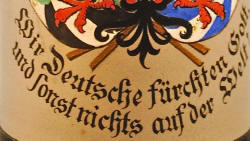 Wir Deutsche fürchten Got
und sonst nichts auf der Wel